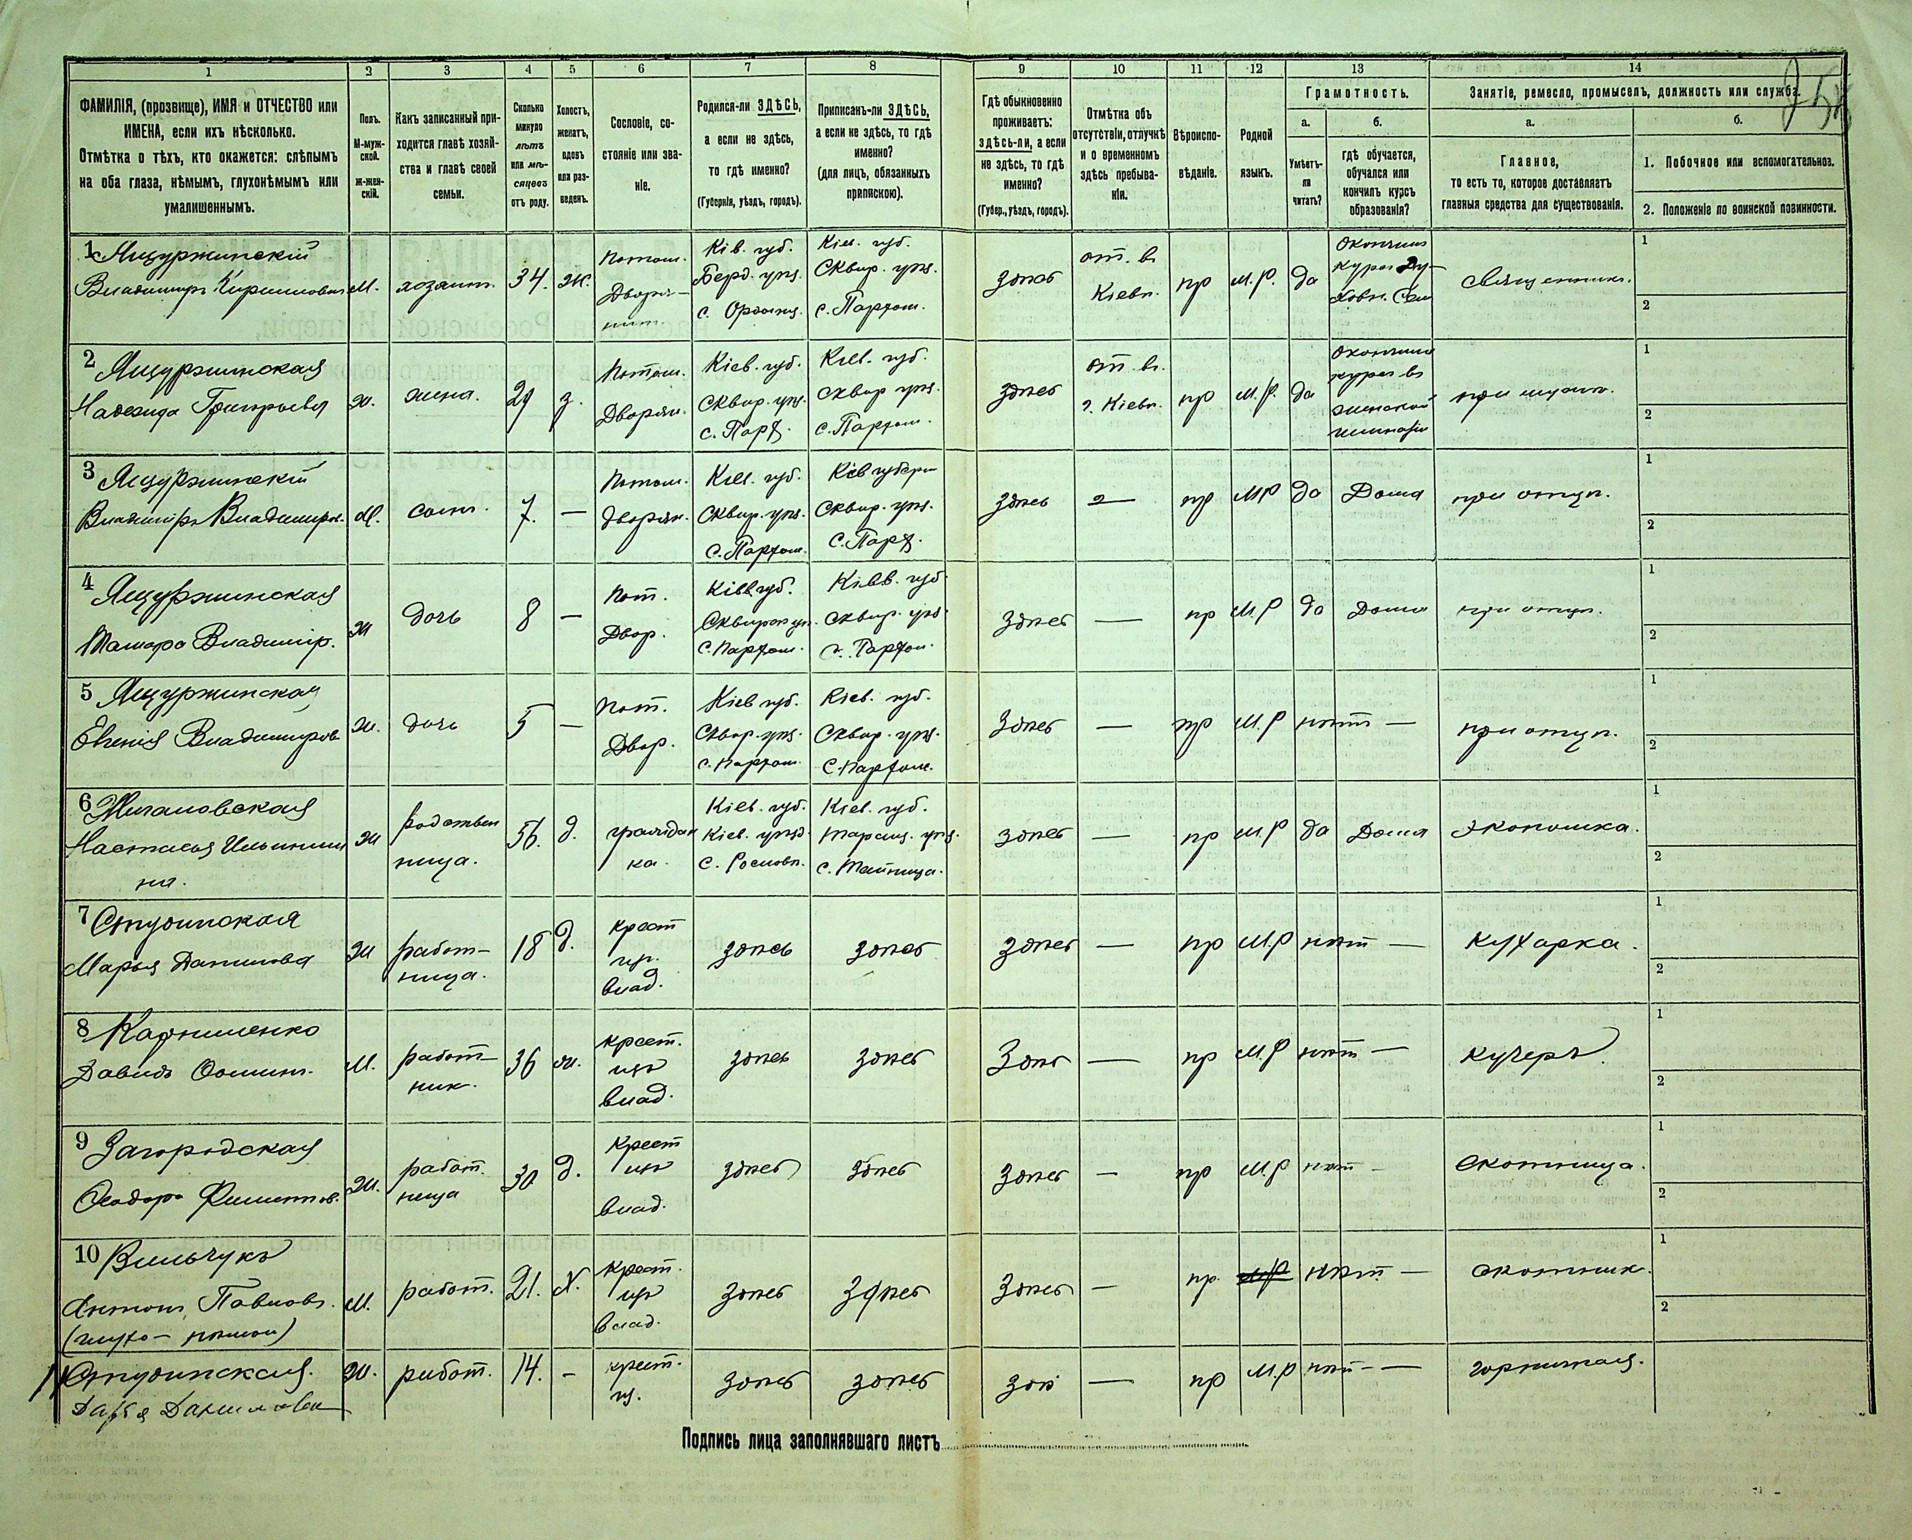 1 2 3 4 5 6 7 8 9 10 11 12 13 14
ФАМИЛІЯ, (прозвище), ИМЯ и ОТЧЕСТВО или
ИМЕНА, если ихъ нѣсколько.
Отмѣтка о тѣхъ, кто окажется: слѣпымъ
на оба глаза, нѣмымъ, глухонѣмымъ или
умалишеннымъ.
Полъ.
М-муж-
ской.
ж-жен-
скій.
Какъ записанный при-
ходится главѣ хозяй-
ства и главѣ своей
семьи.
Сколько
минуло
лѣтъ
или мѣ-
сяцевъ
отъ роду.
Холостъ,
женатъ,
вдовъ
или раз-
веденъ.
Сословіе, со-
стояніе или зва-
ніе.
Родился-ли ЗДѢСЬ,
а если не здѣсь,
то гдѣ именно?
(Губернія, уѣздъ, городъ).
Приписанъ-ли ЗДѢСЬ,
а если не здѣсь, то гдѣ
именно?
(для лицъ, обязанныхъ
припискою).
Гдѣ обыкновенно
проживаетъ:
здѣсь-ли, а если
не здѣсь, то гдѣ
именно?
(Губер., уѣздъ, городъ).
Отмѣтка объ
отсутствіи, отлучкѣ
и о временномъ
здѣсь пребыва-
ніи.
Вѣроиспо-
вѣданіе.
Родной
языкъ.
Грамотность.
а. б.
Умѣетъ-
ли
читать?
гдѣ обучается,
обучался или
кончилъ курсъ
образованія?
Занятіе, ремесло, промыселъ, должность или служба.
а. б.
Главное,
то есть то, которое доставляетъ
главныя средства для существованія.
1. Побочное или вспомогательное.
2. Положеніе по воинской повинности.
1 Ящуржинскій
Владимиръ Кириловъ М. хозяин. 34. ж.
Потом.
Дворя-
нин
Кіев. губ.
Берд. уѣз.
с.
Кіев. губ.
Сквир. уѣз.
с. Пархом.
здѣсь
от. въ
Кіевѣ.
пр М.Р. да
Окончил
курсъ Ду-
ховн. Сем
священникъ.
1
2
2 Ящуржинская
Надежда Григорьева ж. жена. 29 з.
Потом.
Дворян.
Кіев. губ.
Сквир. уѣз.
с. Парх.
Кіев. губ.
Сквир уѣз.
с. Пархом.
здѣсь
от. въ
г. Кіевѣ.
пр М.Р. да
Окончила
курсъ въ
женской
гимназіи
при мужѣ.
1
2
3 Ящуржинскій
Владиміръ Владиміров. М. сынъ. 7. —
Потом.
Дворян.
Кіев. губ.
Сквир. уѣз.
с. Пархом.
Кіев губерн
Сквир. уѣз.
с. Парх.
здѣсь — пр М.Р да Дома при отцѣ.
1
2
4 Ящуржинская
Тамара Владимір. ж дочь 8 —
Пот.
Двор.
Кіев губ.
Сквирск уѣ.
с. Пархом.
Кіев. губ.
Сквир. уѣз.
с. Пархом.
здѣсь — пр М.Р да Дома при отцѣ.
1
2
5 Ящуржинская
Евгенія Владимиров ж. дочь 5 —
Пот.
Двор.
Кіев губ.
Сквир. уѣз.
с. Пархом.
Кіев. губ.
Сквир. уѣз.
с. Пархом.
здѣсь — пр М.Р нѣт — при отцѣ.
1
2
6 Жигаловская
Настасья Ильинич
на.
ж
родствен
ница.
56. д.
граждан
ка.
Кіев. губ.
Кіев. уѣзд.
с.
Кіев. губ.
Таращ. уѣз.
с.
здѣсь — пр М.Р да Дома экономка.
1
2
7 Студинская
Марья Данилова ж
работ-
ница.
18 д.
крест
из.
влад.
здѣсь здѣсь здѣсь — пр М.Р нѣт — кухарка.
1
2
8 Карниленко
Давидъ Осипов. М.
работ-
ник.
36 ж.
крест.
из
влад.
здѣсь здѣсь здѣс — пр М.Р нѣт — кучеръ.
1
2
9 Загородская
Феодора Филиппов. ж.
работ.
ница
30 д.
крест
из
влад.
здѣсь здѣсь здѣсь — пр М.Р нѣт — скотница.
1
2
10 Вильчукъ
Антонъ Павловъ.
(глухо-нѣмой)
М. работ. 21. Х.
крест.
из
влад.
здѣсь здѣсь здѣсь — пр. нѣт — скотник.
1
2
11 Студинская.
Дарья Данилова
ж. работ. 14. —
крест.
из.
здѣсь здѣсь здѣ — пр М.Р нѣт — горничная.
Подпись лица заполнявшаго листъ